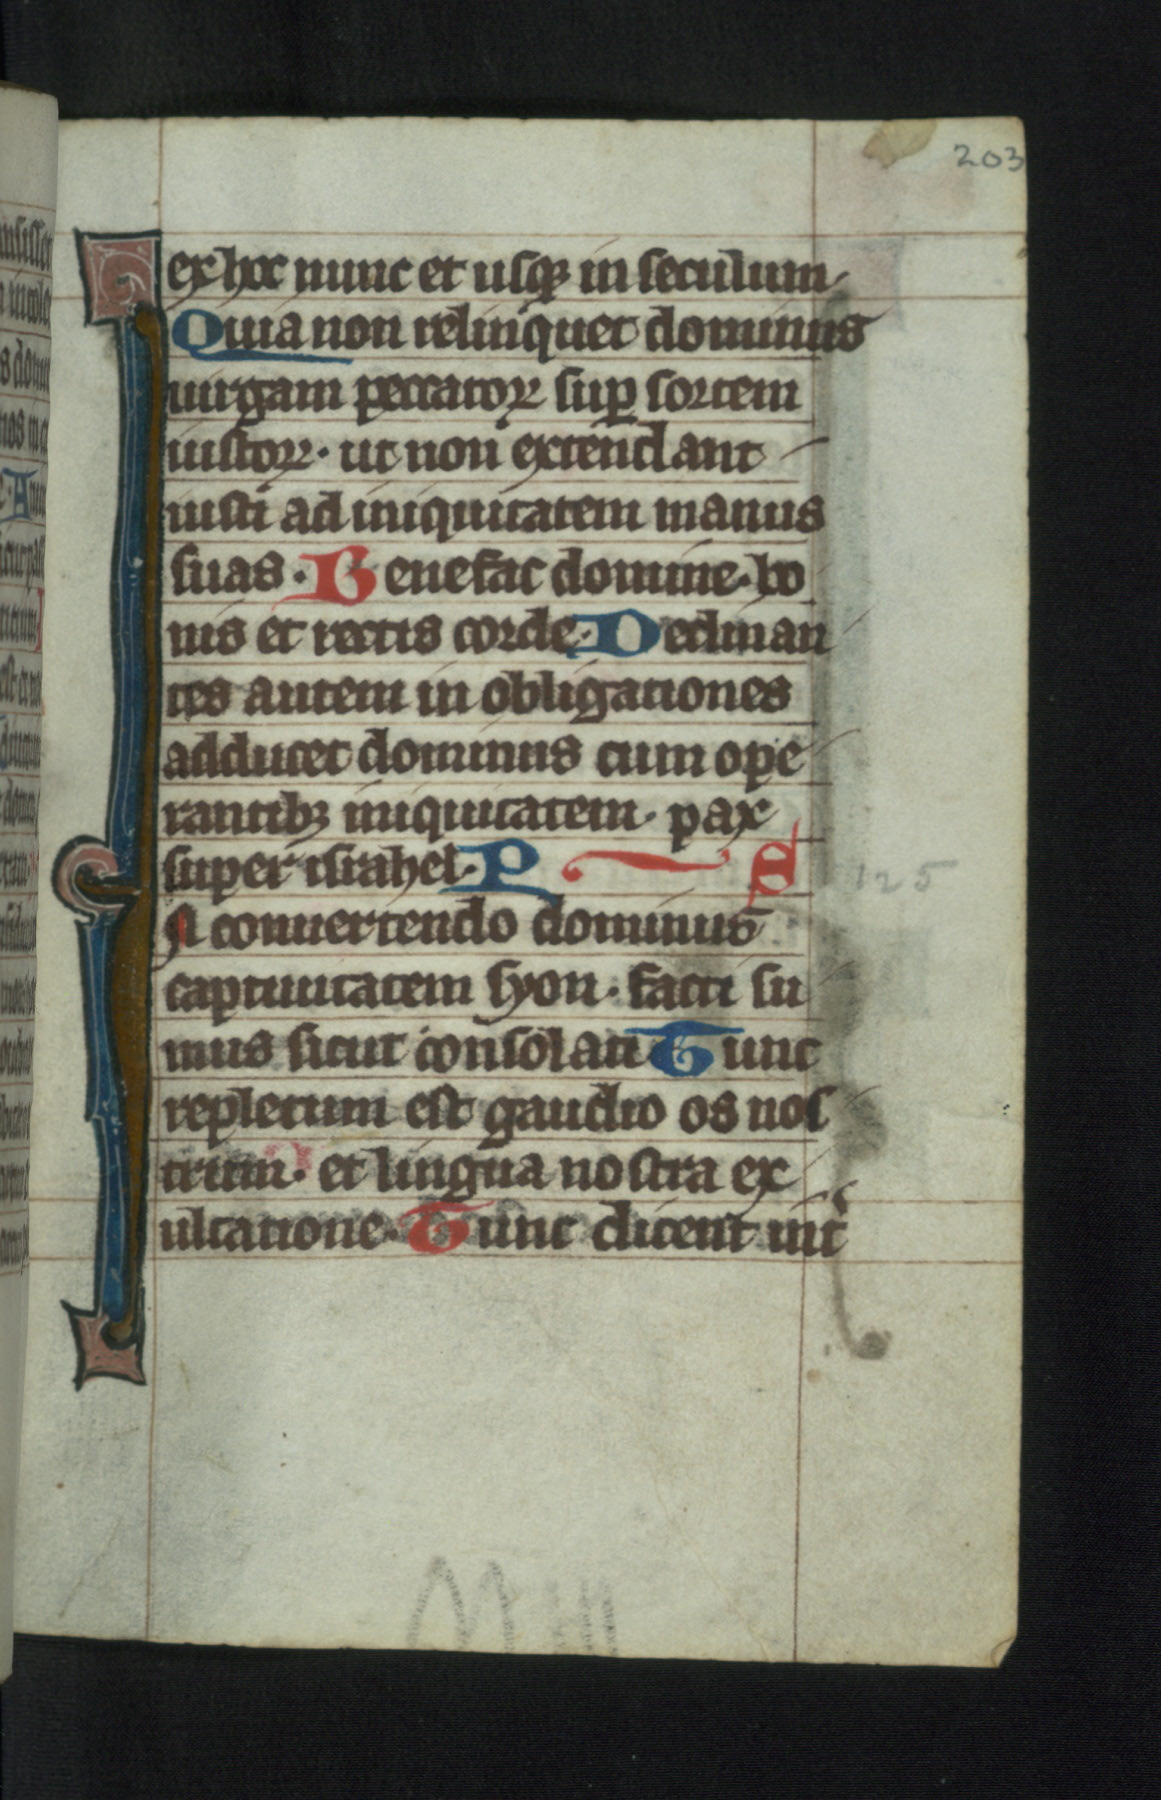 203
ex hoc nunc et usqꝫ in seculum·
Quia non relinquet dominus
uirgam peccatoꝝ sup̱ sortem
iustoꝝ· ut non extendant
iusti ad iniquitatem manus
suas· Benefac domine· bo
nis et rectis corde· Declinan
tes autem in obligationes
adducet dominus cum ope
rantibꝫ iniquitatem· pax
super israhel· P S
N conuertendo dominus
captiuitatem syon· facti su
mus sicut consolati Tunc
repletum est gaudio os nos
trum· et lingua nostra ex
ultatione· Tunc dicent int̕
125